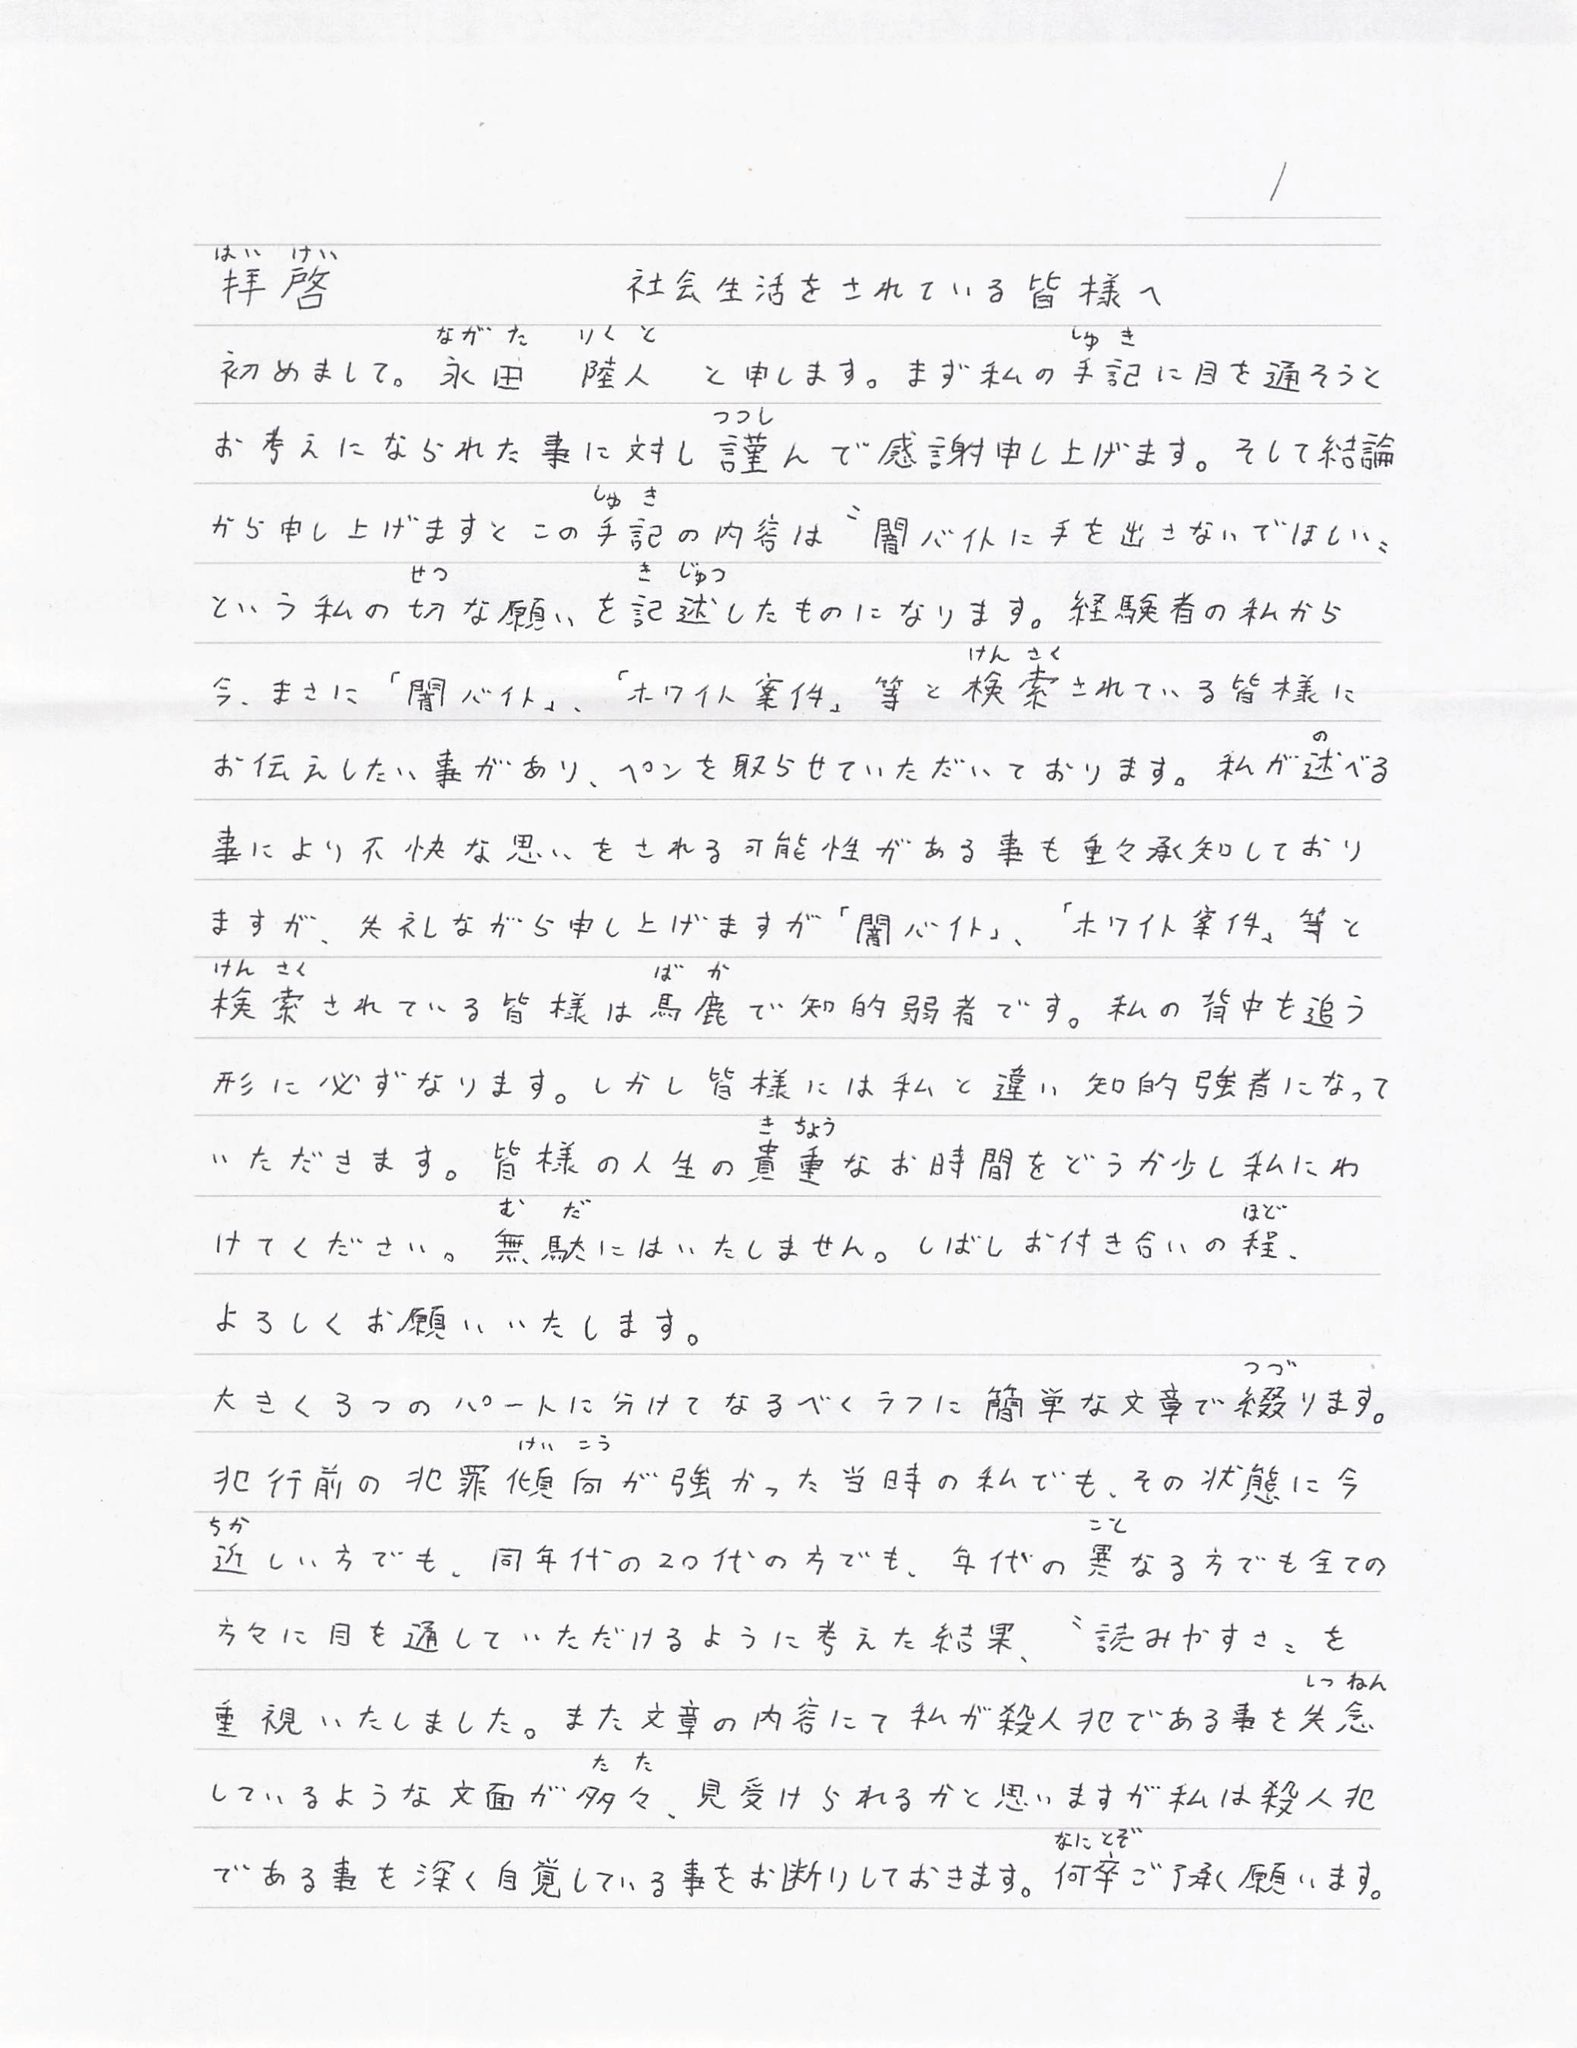 1
はい けい
拝啓 社会生活をされている皆様へ
ながた りくと しゅき
初めまして。永田 陸人 と申します。まず私の手記に目を通そうと
つつし
お考えになられた事に対し謹んで感謝申し上げます。そして結論
しゅき
から申し上げますとこの手記の内容は〝闇バイトに手を出さないでほしい〟
せつ き じゅつ
という私の切な願いを記述したものになります。経験者の私から
けん さく
今、まさに「闇バイト」、「ホワイト案件」等と検索されている皆様に
の
お伝えしたい事があり、ペンを取らせていただいております。私が述べる
事により不快な思いをされる可能性がある事も重々承知しており
ますが、失礼ながら申し上げますが「闇バイト」、「ホワイト案件」等と
けん さく ば か
検索されている皆様は馬鹿で知的弱者です。私の背中を追う
形に必ずなります。しかし皆様には私と違い知的強者になって
き ちょう
いただきます。皆様の人生の貴重なお時間をどうか少し私にわ
む だ ほど
けてください。無駄にはいたしません。しばしお付き合いの程、
よろしくお願いいたします。
つづ
大きく3つのパートに分けてなるべくラフに簡単な文章で綴ります。
けい こう
犯行前の犯罪傾向が強かった当時の私でも、その状態に今
ちか こと
近しい方でも、同年代の20代の方でも、年代の異なる方でも全ての
方々に目を通していただけるように考えた結果、〝読みやすさ〟を
しつ ねん
重視いたしました。また文章の内容にて私が殺人犯である事を失念
た た
しているような文面が多々、見受けられるかと思いますが私は殺人犯
なに とぞ
である事を深く自覚している事をお断りしておきます。何卒ご了承願います。